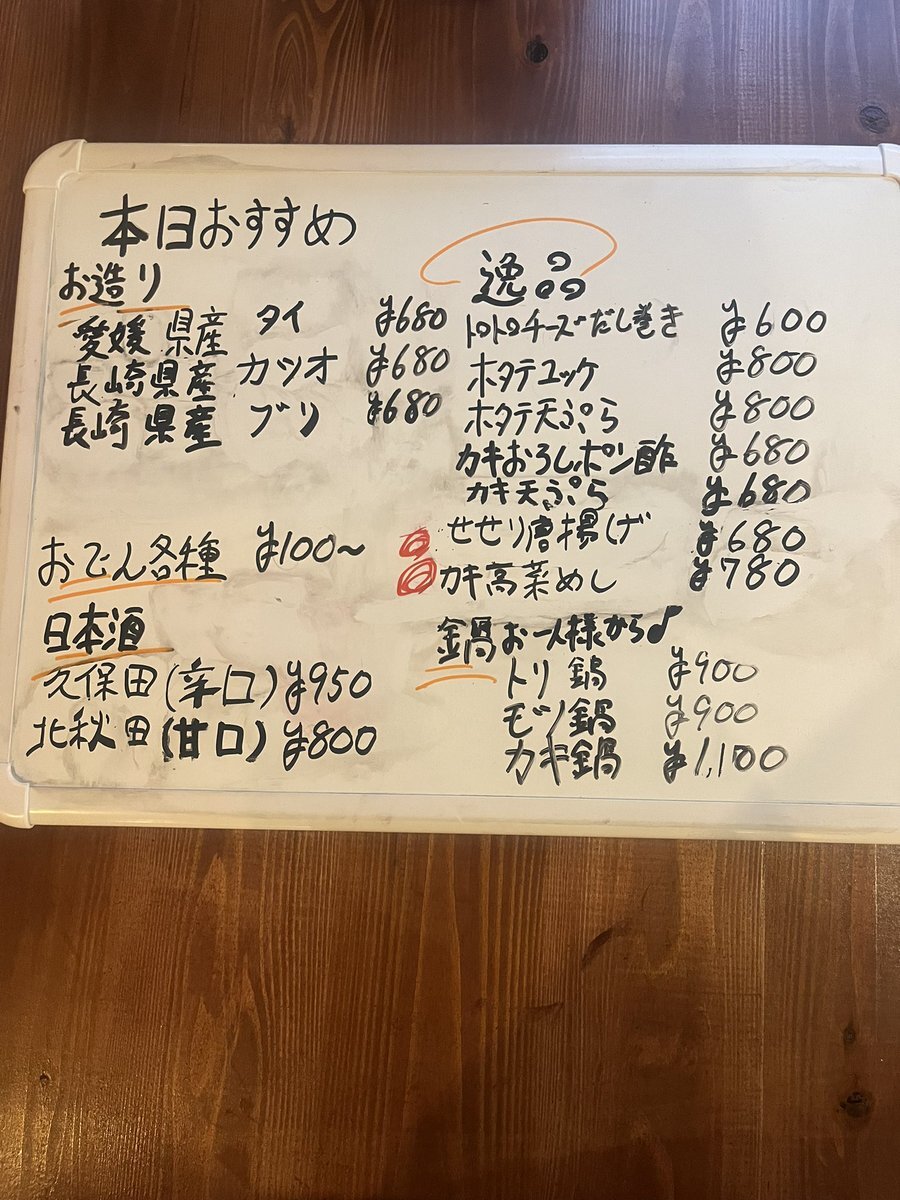 本日おすすめ
お造り
愛媛県産 タイ ¥680
長崎県産 カツオ ¥680
長崎県産 ブリ ¥680
おでん各種 ¥100~
日本酒
久保田(辛口) ¥950
北秋田(甘口) ¥800
逸品
トロトロチーズだし巻き ¥600
ホタテユッケ ¥800
ホタテ天ぷら ¥800
カキおろしポン酢 ¥680
カキ天ぷら ¥680
せせり唐揚げ ¥680
カキ高菜めし ¥780
鍋お一人様から♪
トリ鍋 ¥900
モツ鍋 ¥900
カキ鍋 ¥1,100